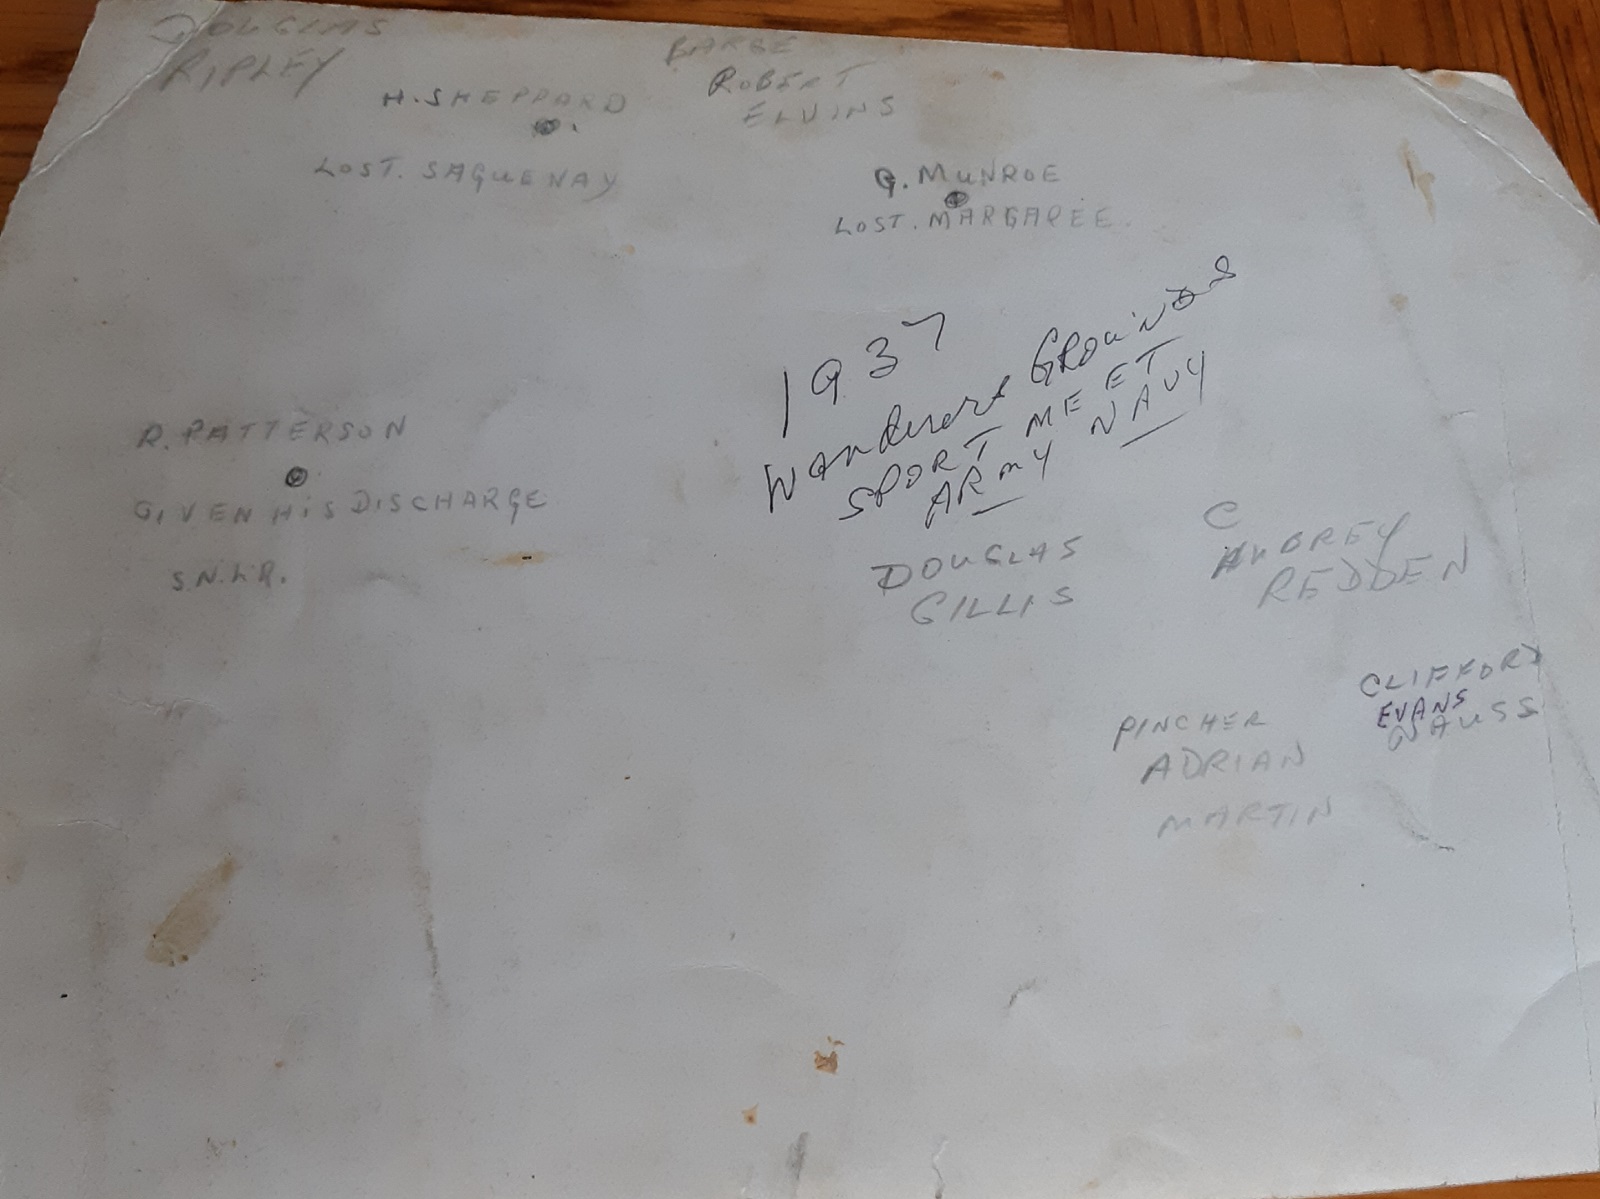 DOUGLAS
RIPLEY
H. SHEPPARD
LOST. SAGUENAY
BARGE
ROBERT
ELVINS
G. MUNROE
LOST. MARGAREE.
1937
Wanderers GROUNDS
SPORT MEET
ARMY NAVY
R. PATTERSON
GIVEN HIS DISCHARGE
S.N.L.R.
DOUGLAS
GILLIS
C
AUBREY
REDDEN
PINCHER
ADRIAN
MARTIN
CLIFFORD
EVANS
NAUSS